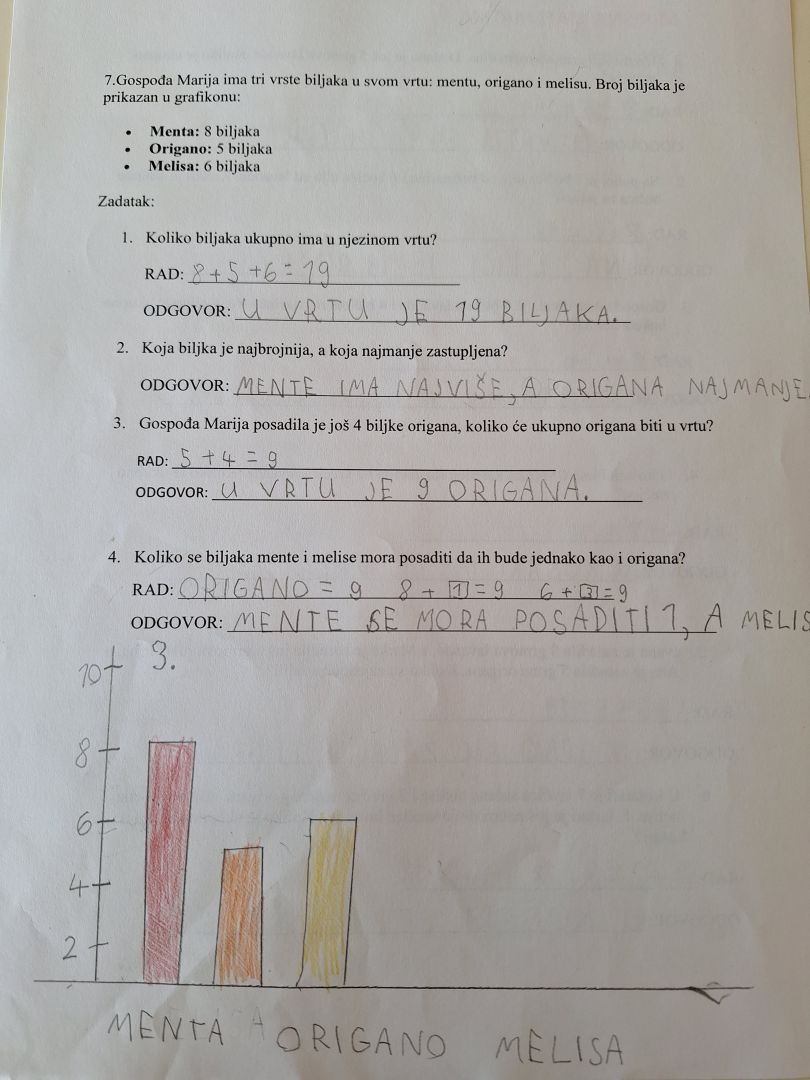 7.Gospođa Marija ima tri vrste biljaka u svom vrtu: mentu, origano i melisu. Broj biljaka je
prikazan u grafikonu:
• Menta: 8 biljaka
• Origano: 5 biljaka
• Melisa: 6 biljaka
Zadatak:
1. Koliko biljaka ukupno ima u njezinom vrtu?
RAD: 8+5+6=19
ODGOVOR: U VRTU JE 19 BILJAKA.
2. Koja biljka je najbrojnija, a koja najmanje zastupljena?
ODGOVOR: MENTE IMA NAJVIŠE, A ORIGANA NAJMANJE.
3. Gospođa Marija posadila je još 4 biljke origana, koliko će ukupno origana biti u vrtu?
RAD: 5+4=9
ODGOVOR: U VRTU JE 9 ORIGANA.
4. Koliko se biljaka mente i melise mora posaditi da ih bude jednako kao i origana?
RAD: ORIGANO = 9 8 + 1 = 9 6 + 3 = 9
ODGOVOR: MENTE SE MORA POSADITI 1, A MELIS
3.
10
8
6
4
2
MENTA ORIGANO MELISA